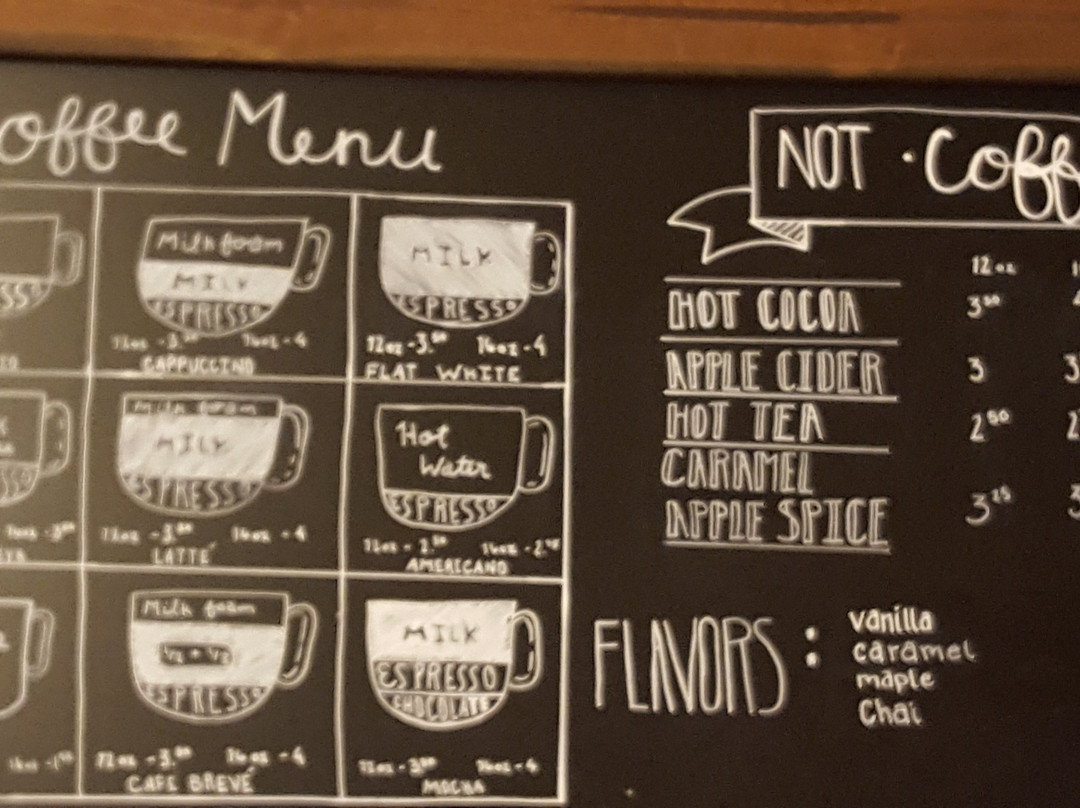 offee Menu
Milk foam
MILK
ESPRESSO
12oz - 3.50 16oz - 4
CAPPUCCINO
MILK
ESPRESSO
12oz - 3.50 16oz - 4
FLAT WHITE
Milk foam
MILK
ESPRESSO
12oz - 3.50 16oz - 4
LATTÉ
Hot
Water
ESPRESSO
12oz 16oz
AMERICANO
Milk foam
1/2 + 1/2
ESPRESSO
12oz - 3.50 16oz - 4
CAFE BREVÉ
MILK
ESPRESSO
CHOCOLATE
12oz - 3.50 16oz - 4
MOCHA
NOT · Coff
12oz
HOT COCOA 3.50
APPLE CIDER 3 3
HOT TEA 2.50 2
CARAMEL
APPLE SPICE 3.25 3
FLAVORS :
vanilla
caramel
maple
Chai